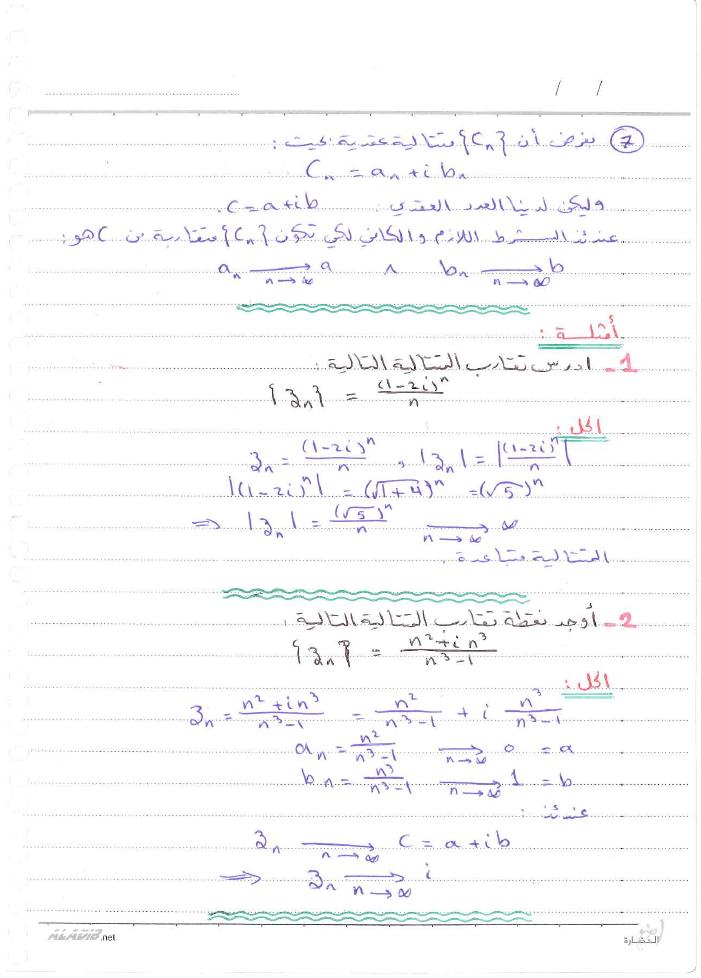 / /
⑦ بفرض أن {Cn} متتالية عقدية بحيث :
Cn = an + i bn
وليكن لدينا العدد العقدي : c = a + ib .
عندئذ الشرط اللازم والكافي لكي تكون {Cn} متقاربة من C هو :
an ⟶ a (n→∞) ∧ bn ⟶ b (n→∞)
أمثلة :
1- ادرس تقارب المتتالية التالية :
{zn} = (1-2i)^n / n
الحل :
zn = (1-2i)^n / n , |zn| = |(1-2i)^n / n|
|(1-2i)^n| = (√(1+4))^n = (√5)^n
⇒ |zn| = (√5)^n / n ⟶ ∞ (n→∞)
المتتالية متباعدة .
2- أوجد نقطة تقارب المتتالية التالية :
{zn} = (n² + i n³) / (n³-1)
الحل :
zn = (n² + i n³) / (n³-1) = n² / (n³-1) + i n³ / (n³-1)
an = n² / (n³-1) ⟶ 0 = a (n→∞)
bn = n³ / (n³-1) ⟶ 1 = b (n→∞)
عندئذ :
zn ⟶ C = a + ib (n→∞)
⇒ zn ⟶ i (n→∞)
ALADIB.net
الحضارة